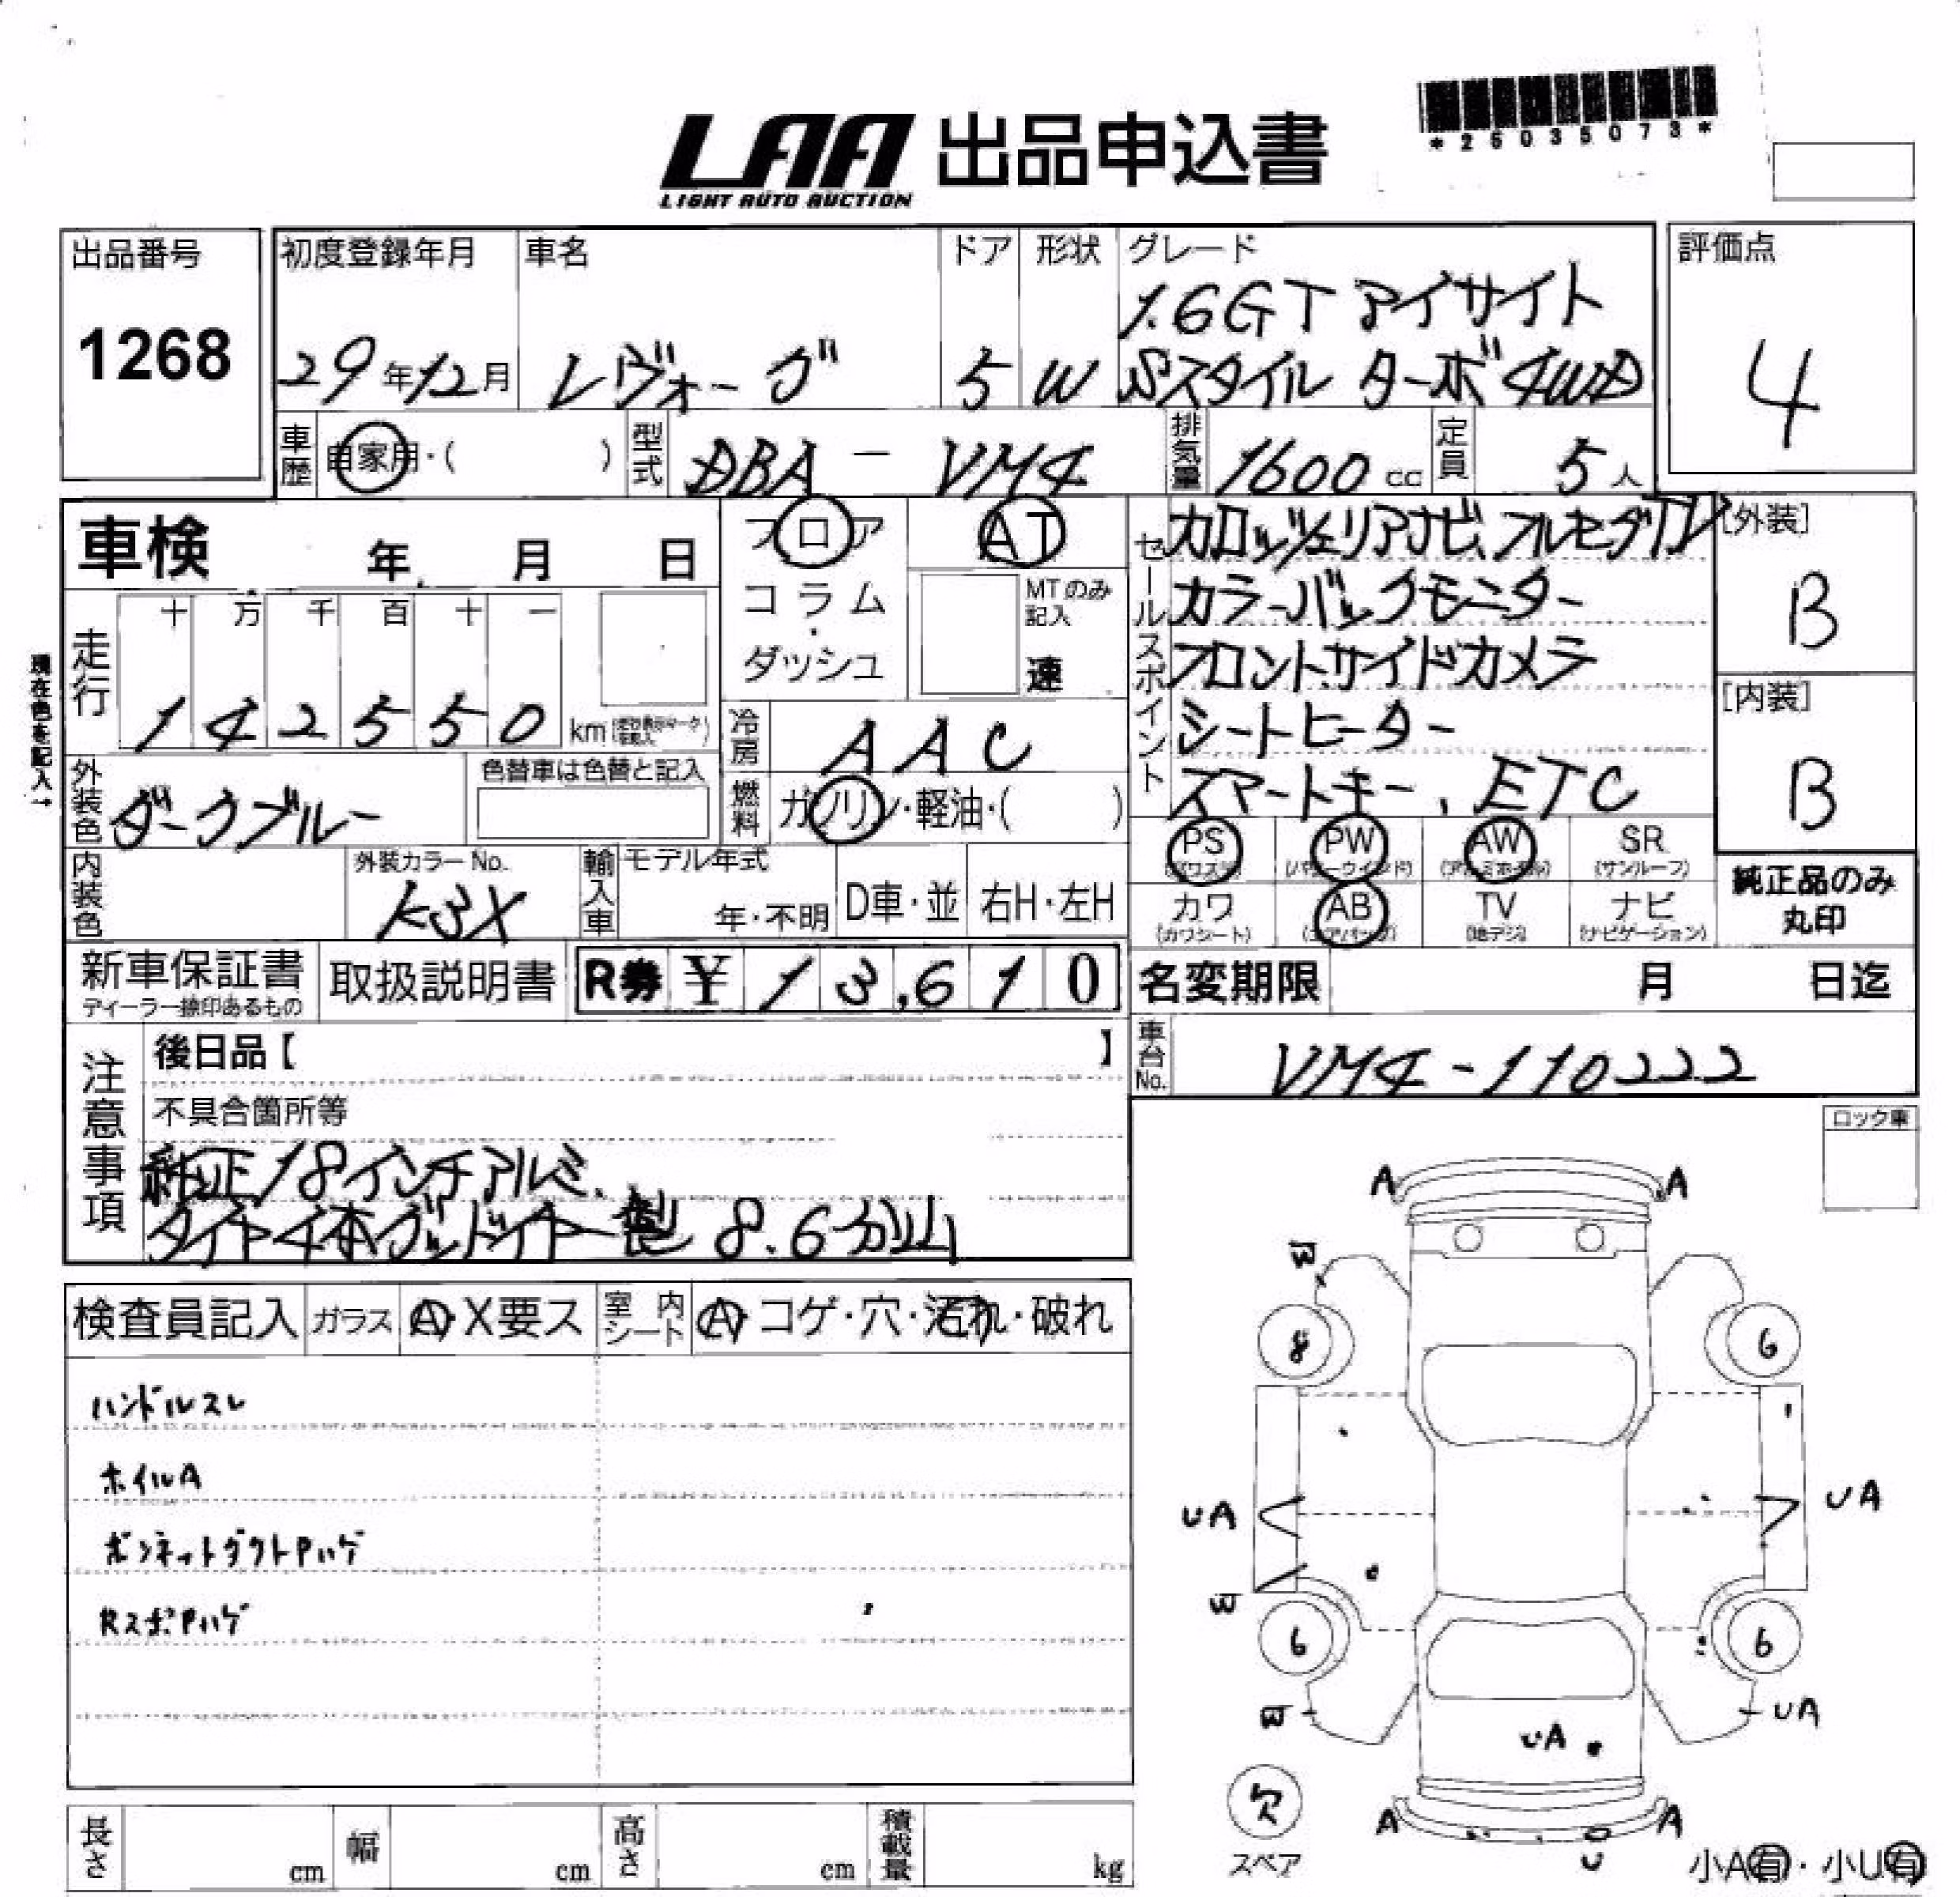 *26035073*
LAA 出品申込書
LIGHT AUTO AUCTION
出品番号
1268
初度登録年月
29年12月
車名
レヴォーグ
ドア
5
形状
W
グレード
1.6GT アイサイト
Sスタイル ターボ 4WD
評価点
4
車歴
自家用・( )
型式
DBA - VM4
排気量
1600 cc
定員
5人
車検 年 月 日
フロア
コラム
・
ダッシュ
AT
MTのみ
記入
速
セールスポイント
カロッツェリアナビ、フルセグTV
カラーバックモニター
フロントサイドカメラ
シートヒーター
スマートキー、ETC
[外装]
B
[内装]
B
現在色を記入→
走行
十 万 千 百 十 一
1 4 2 5 5 0 km
冷房
AAC
外装色
ダークブルー
色替車は色替と記入
燃料
ガソリン・軽油・( )
内装色
外装カラーNo.
K3X
輸入車
モデル年式
年・不明
D車・並
右H・左H
PS
(パワステ)
PW
(パワーウインド)
AW
(アルミホイル)
SR
(サンルーフ)
カワ
(カワシート)
AB
(エアバッグ)
TV
(地デジ)
ナビ
(ナビゲーション)
純正品のみ
丸印
新車保証書
ディーラー捺印あるもの
取扱説明書
R券 ¥ 13,610
名変期限 月 日迄
車台No.
VM4-110222
注意事項
後日品【 】
不具合箇所等
純正18インチアルミ、
タイヤ4本グッドイヤー製 8.6分山
ロック車
検査員記入
ガラス
A X要ス
室内シート
A コゲ・穴・汚れ・破れ
ハンドルスレ
ホイルA
ボンネットダクトPハゲ
RスポPハゲ
A A
W
8 6
UA UA
W
6 6
W UA
UA
欠
スペア
A A
U
小A有・小U有
長さ cm
幅 cm
高さ cm
積載量 kg